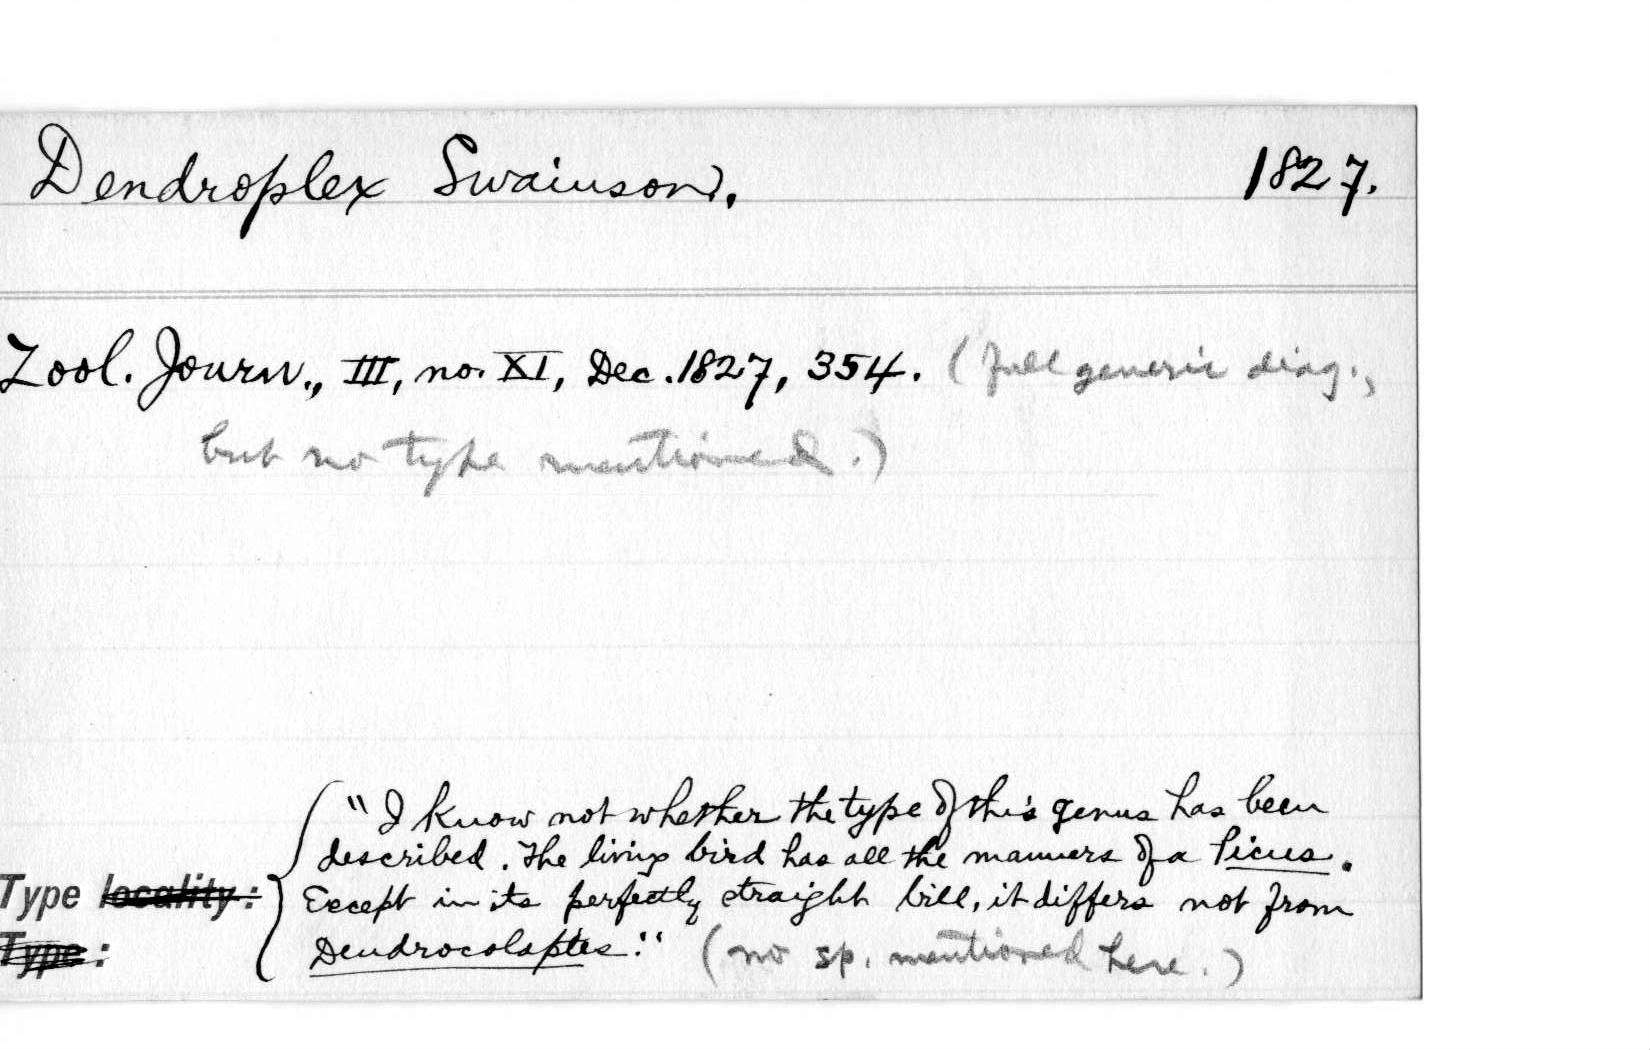 Dendroplex Swainson. 1827.
Zool. Journ., III, no. XI, Dec. 1827, 354. (full generic diag.,
but no type mentioned.)
"I know not whether the type of this genus has been
described. The living bird has all the manners of a Picus.
Type locality: Except in its perfectly straight bill, it differs not from
Type: Dendrocolaptes." (no sp. mentioned here.)